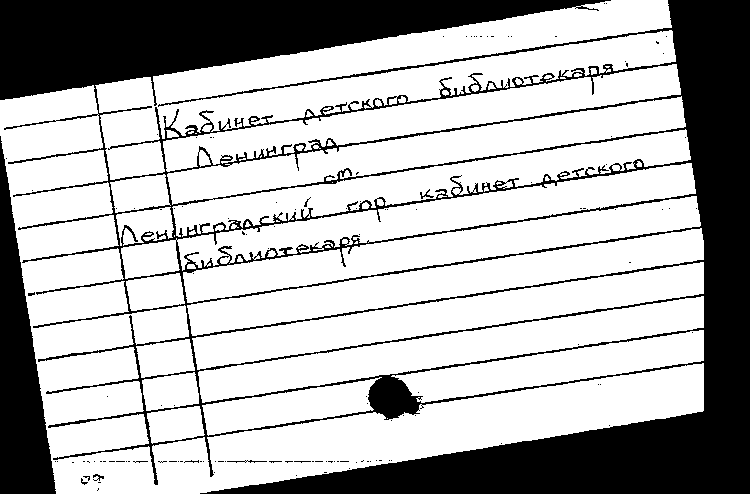 Кабинет детского библиотекаря.
Ленинград
см.
Ленинградский гор кабинет детского
библиотекаря.